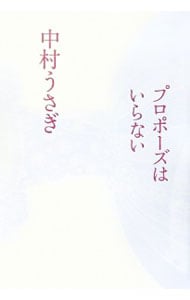 プロポーズは
いらない
中村うさぎ